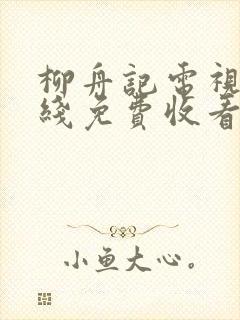 柳舟記電視
綫免費收看
小鱼大心。